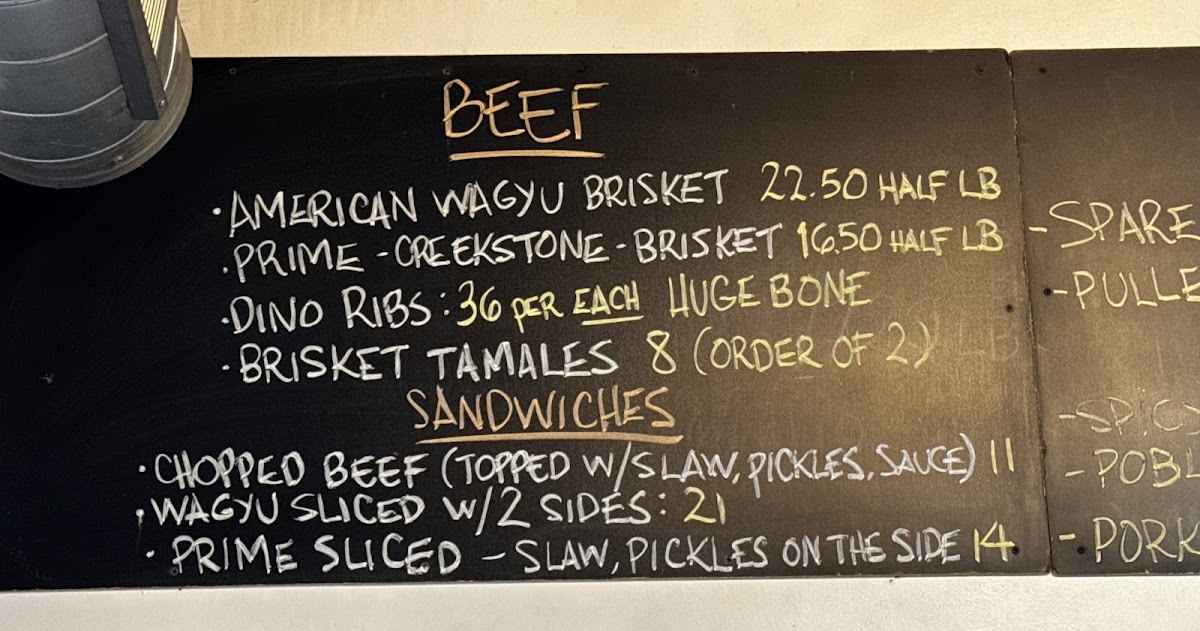 BEEF
· AMERICAN WAGYU BRISKET 22.50 HALF LB
· PRIME - CREEKSTONE - BRISKET 16.50 HALF LB
· DINO RIBS: 36 PER EACH HUGE BONE
· BRISKET TAMALES 8 (ORDER OF 2)
SANDWICHES
· CHOPPED BEEF (TOPPED W/SLAW, PICKLES, SAUCE) 11
· WAGYU SLICED W/2 SIDES: 21
· PRIME SLICED - SLAW, PICKLES ON THE SIDE 14
- SPARE
- PULLE
- SPICY
- POBL
- PORK